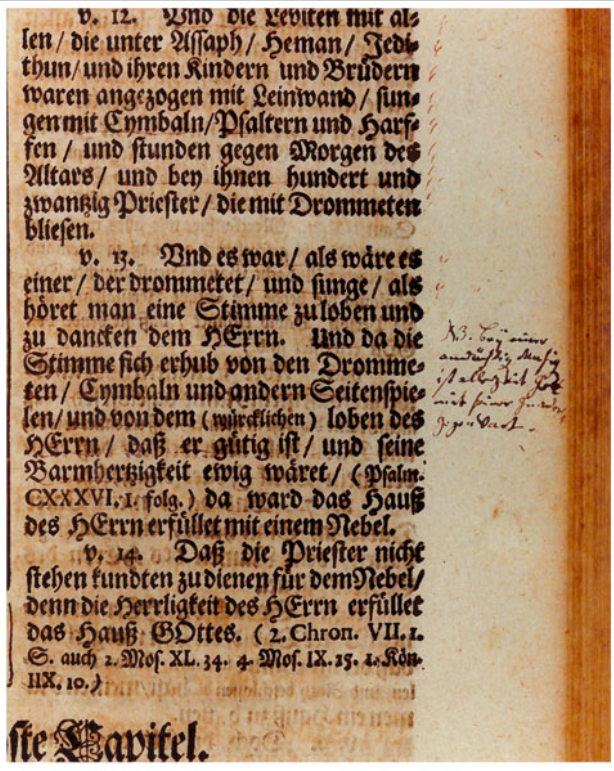 v. 12. Vnd die Leviten mit al-
len / die unter Assaph / Heman / Jedi-
thun / und ihren Kindern und Brüdern
waren angezogen mit Leinwand / sun-
gen mit Cymbaln / Psaltern und Harf-
fen / und stunden gegen Morgen des
Altars / und bey ihnen hundert und
zwantzig Priester / die mit Drommeten
bliesen.
v. 13. Vnd es war / als wäre es
einer / der drommetet / und sunge / als
höret man eine Stimme zu loben und
zu dancken dem HErrn. Und da die
Stimme sich erhub von den Dromme-
ten / Cymbaln und andern Seitenspie-
len / und von dem (würcklichen) loben des
HErrn / daß er gütig ist / und seine
Barmhertzigkeit ewig wäret / (Psalm.
CXXXVI. 1. folg.) da ward das Hauß
des HErrn erfüllet mit einem Nebel.
v. 14. Daß die Priester nicht
stehen kundten zu dienen für dem Nebel /
denn die Herrligkeit des HErrn erfüllet
das Hauß GOttes. (2. Chron. VII. 1.
S. auch 2. Mos. XL. 34. 4. Mos. IX. 15. 1. Kön.
IIX. 10.)
ste Capitel.
NB. Bey einer
andächtig Musiq
ist allezeit Gott
mit seiner Gnaden
Gegenwart.